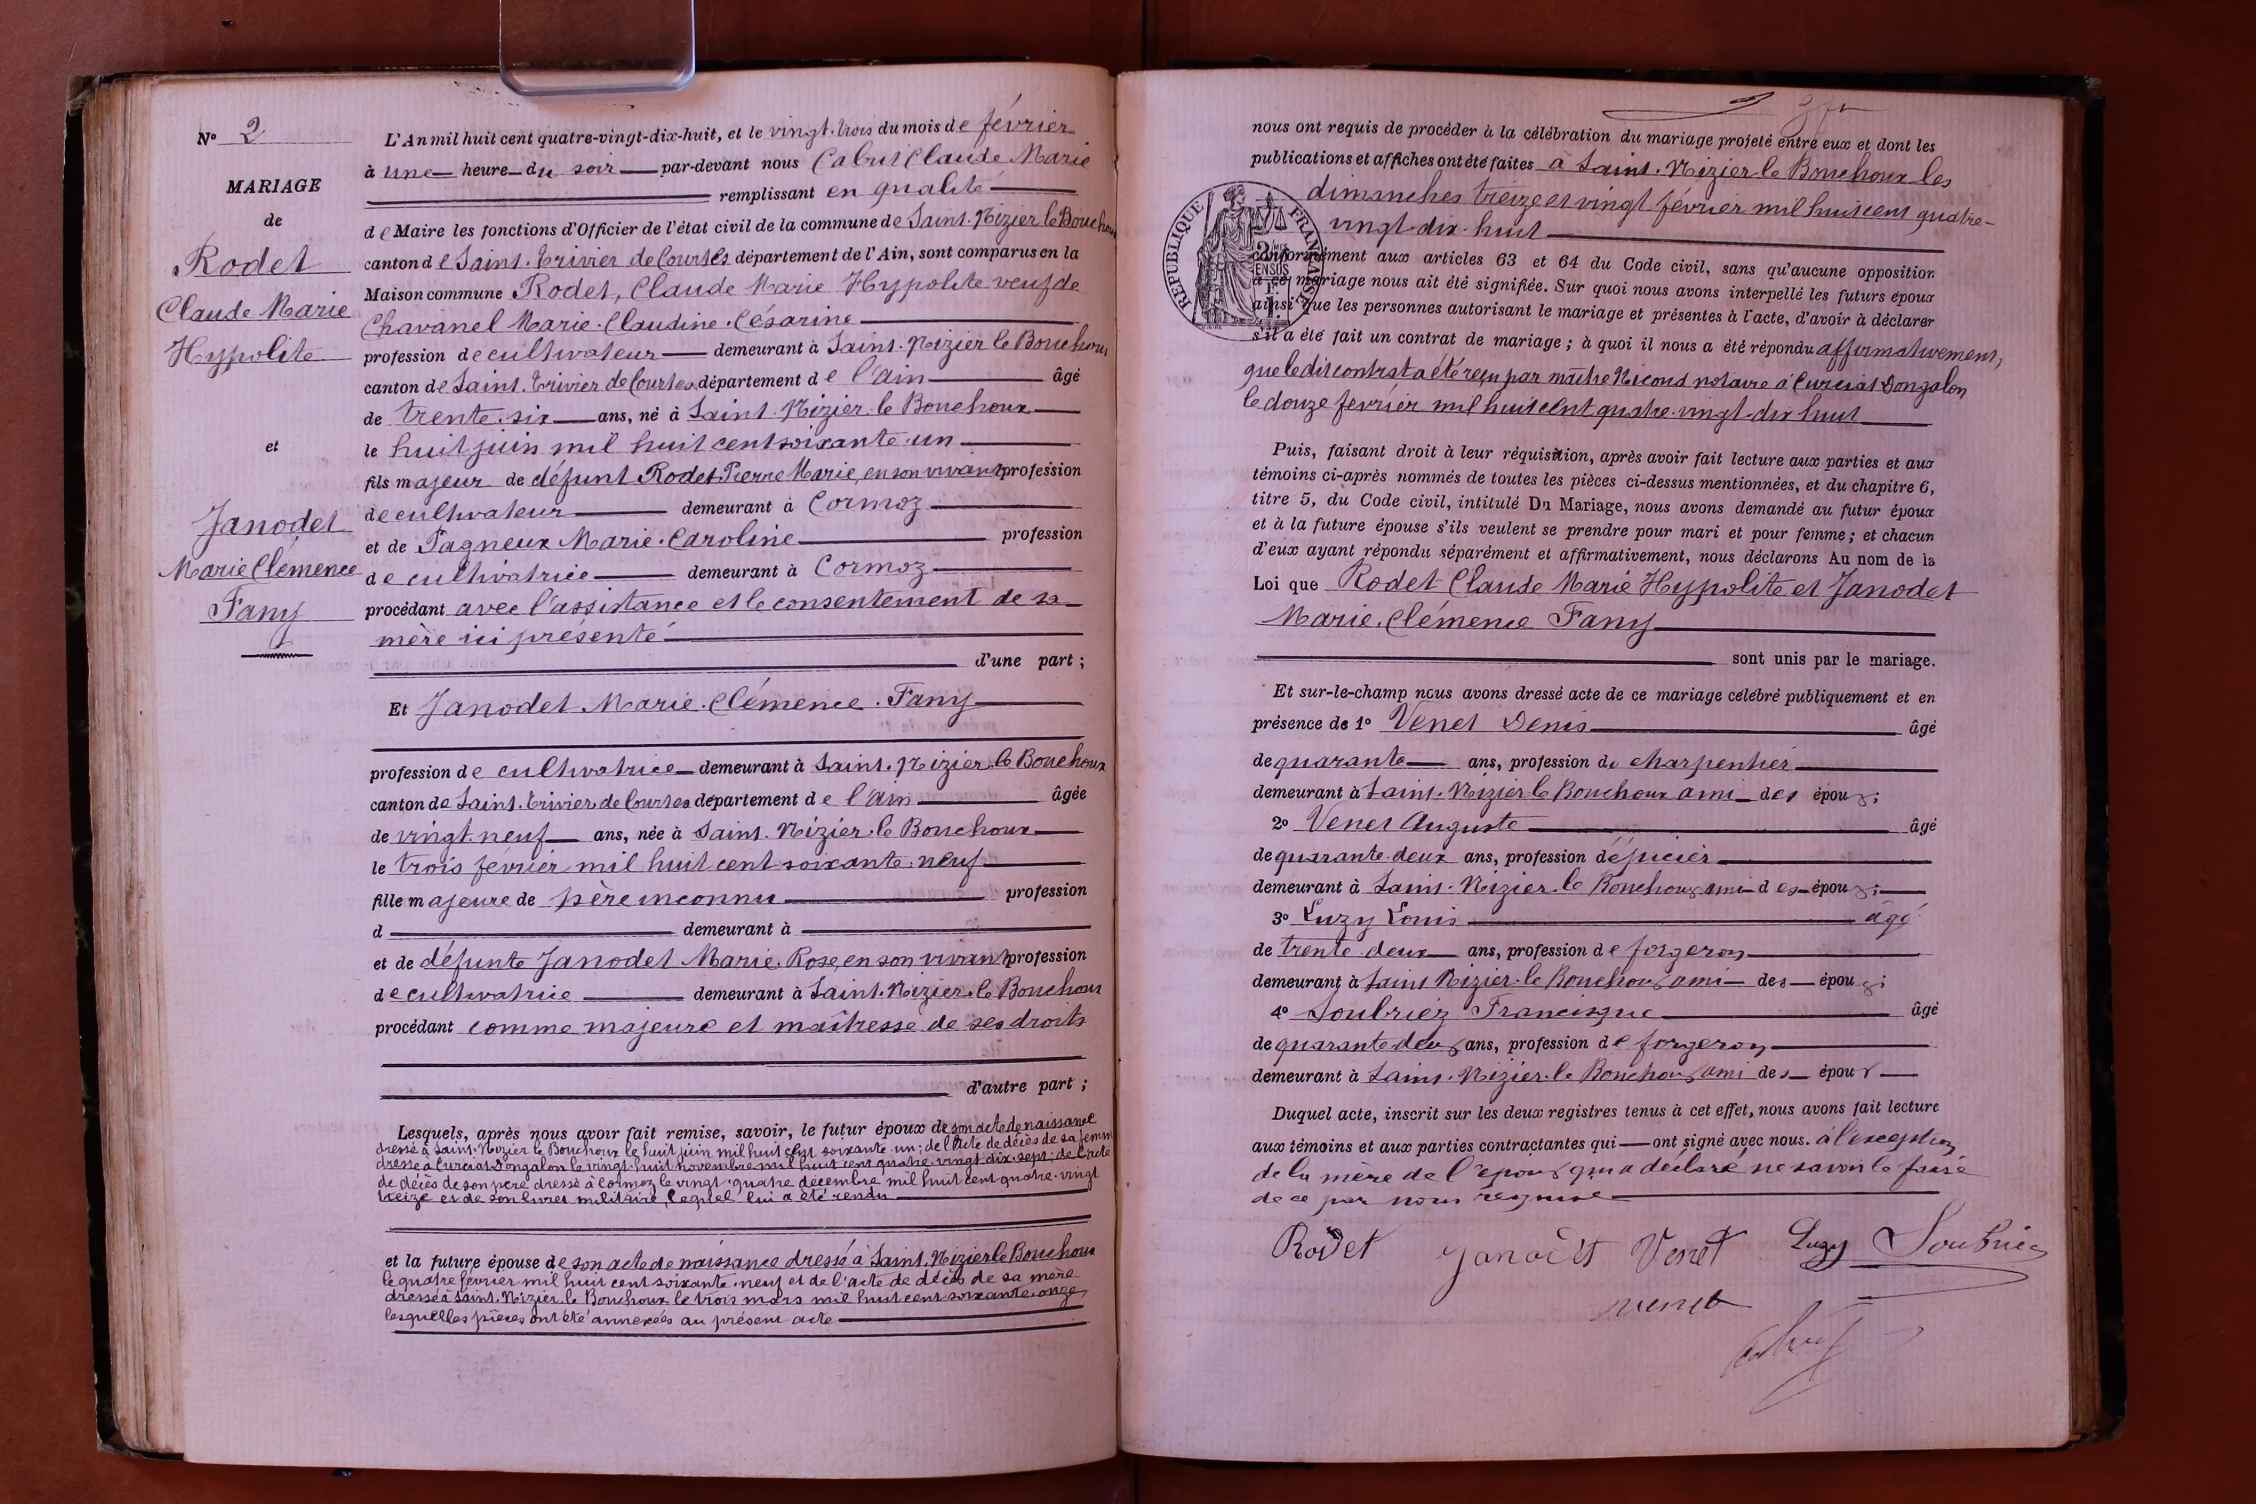 N° 2
MARIAGE
de
Rodet
Claude Marie
Hypolite
et
Janodet
Marie Clémence
Fany
L'An mil huit cent quatre-vingt-dix-huit, et le vingt-trois du mois de février
à une heure du soir par-devant nous Cabut Claude Marie
remplissant en qualité
de Maire les fonctions d'Officier de l'état civil de la commune de Saint-Nizier le Bouchoux
canton de Saint-Trivier de Courtes département de l'Ain, sont comparus en la
Maison commune Rodet, Claude Marie Hypolite veuf de
Chavanel Marie-Claudine-Césarine
profession de cultivateur demeurant à Saint-Nizier le Bouchoux
canton de Saint-Trivier de Courtes département de l'Ain âgé
de trente-six ans, né à Saint-Nizier-le Bouchoux
le huit juin mil huit cent soixante-un
fils majeur de défunt Rodet Pierre Marie, en son vivant profession
de cultivateur demeurant à Cormoz
et de Pagneux Marie-Caroline profession
de cultivatrice demeurant à Cormoz
procédant avec l'assistance et le consentement de sa
mère ici présente
d'une part ;
Et Janodet Marie-Clémence-Fany
profession de cultivatrice demeurant à Saint-Nizier-le Bouchoux
canton de Saint-Trivier de Courtes département de l'Ain âgée
de vingt-neuf ans, née à Saint-Nizier-le Bouchoux
le trois février mil huit cent soixante-neuf
fille majeure de père inconnu profession
d demeurant à
et de défunte Janodet Marie-Rose, en son vivant profession
de cultivatrice demeurant à Saint-Nizier-le Bouchoux
procédant comme majeure et maîtresse de ses droits
d'autre part ;
Lesquels, après nous avoir fait remise, savoir, le futur époux de son acte de naissance
dressé à Saint-Nizier le Bouchoux le huit juin mil huit cent soixante-un ; de l'acte de décès de sa femme
dressé à Curciat Dongalon le vingt-huit novembre mil huit cent quatre-vingt-dix-sept ; de l'acte
de décès de son père dressé à Cormoz le vingt-quatre décembre mil huit cent quatre-vingt
treize et de son livret militaire, lequel lui a été rendu
et la future épouse de son acte de naissance dressé à Saint-Nizier le Bouchoux
le quatre février mil huit cent soixante-neuf et de l'acte de décès de sa mère
dressé à Saint-Nizier-le Bouchoux le trois mars mil huit cent soixante-onze
lesquelles pièces ont été annexées au présent acte
nous ont requis de procéder à la célébration du mariage projeté entre eux et dont les
publications et affiches ont été faites à Saint-Nizier-le Bouchoux les
dimanches treize et vingt février mil huit cent quatre-
vingt-dix-huit
RÉPUBLIQUE FRANÇAISE
conformément aux articles 63 et 64 du Code civil, sans qu'aucune opposition
à ce mariage nous ait été signifiée. Sur quoi nous avons interpellé les futurs époux
ainsi que les personnes autorisant le mariage et présentes à l'acte, d'avoir à déclarer
s'il a été fait un contrat de mariage ; à quoi il nous a été répondu affirmativement,
que ledit contrat a été reçu par maître Nicoud notaire à Curciat Dongalon
le douze février mil huit cent quatre-vingt-dix huit
Puis, faisant droit à leur réquisition, après avoir fait lecture aux parties et aux
témoins ci-après nommés de toutes les pièces ci-dessus mentionnées, et du chapitre 6,
titre 5, du Code civil, intitulé Du Mariage, nous avons demandé au futur époux
et à la future épouse s'ils veulent se prendre pour mari et pour femme ; et chacun
d'eux ayant répondu séparément et affirmativement, nous déclarons Au nom de la
Loi que Rodet Claude Marie Hypolite et Janodet
Marie-Clémence Fany
sont unis par le mariage.
Et sur-le-champ nous avons dressé acte de ce mariage célébré publiquement et en
présence de 1° Venet Denis âgé
de quarante ans, profession de charpentier
demeurant à Saint-Nizier le Bouchoux ami des époux ;
2° Venet Auguste âgé
de quarante-deux ans, profession d'épicier
demeurant à Saint-Nizier-le Bouchoux ami des époux ;
3° Luzy Louis âgé
de trente-deux ans, profession de forgeron
demeurant à Saint Nizier-le Bouchoux ami des époux ;
4° Soubriez Francisque âgé
de quarante deux ans, profession de forgeron
demeurant à Saint-Nizier-le Bouchoux ami des époux
Duquel acte, inscrit sur les deux registres tenus à cet effet, nous avons fait lecture
aux témoins et aux parties contractantes qui ont signé avec nous. à l'exception
de la mère de l'époux qui a déclaré ne savoir le faire
de ce par nous requise
Rodet Janodet Venet Luzy Soubriez
venet